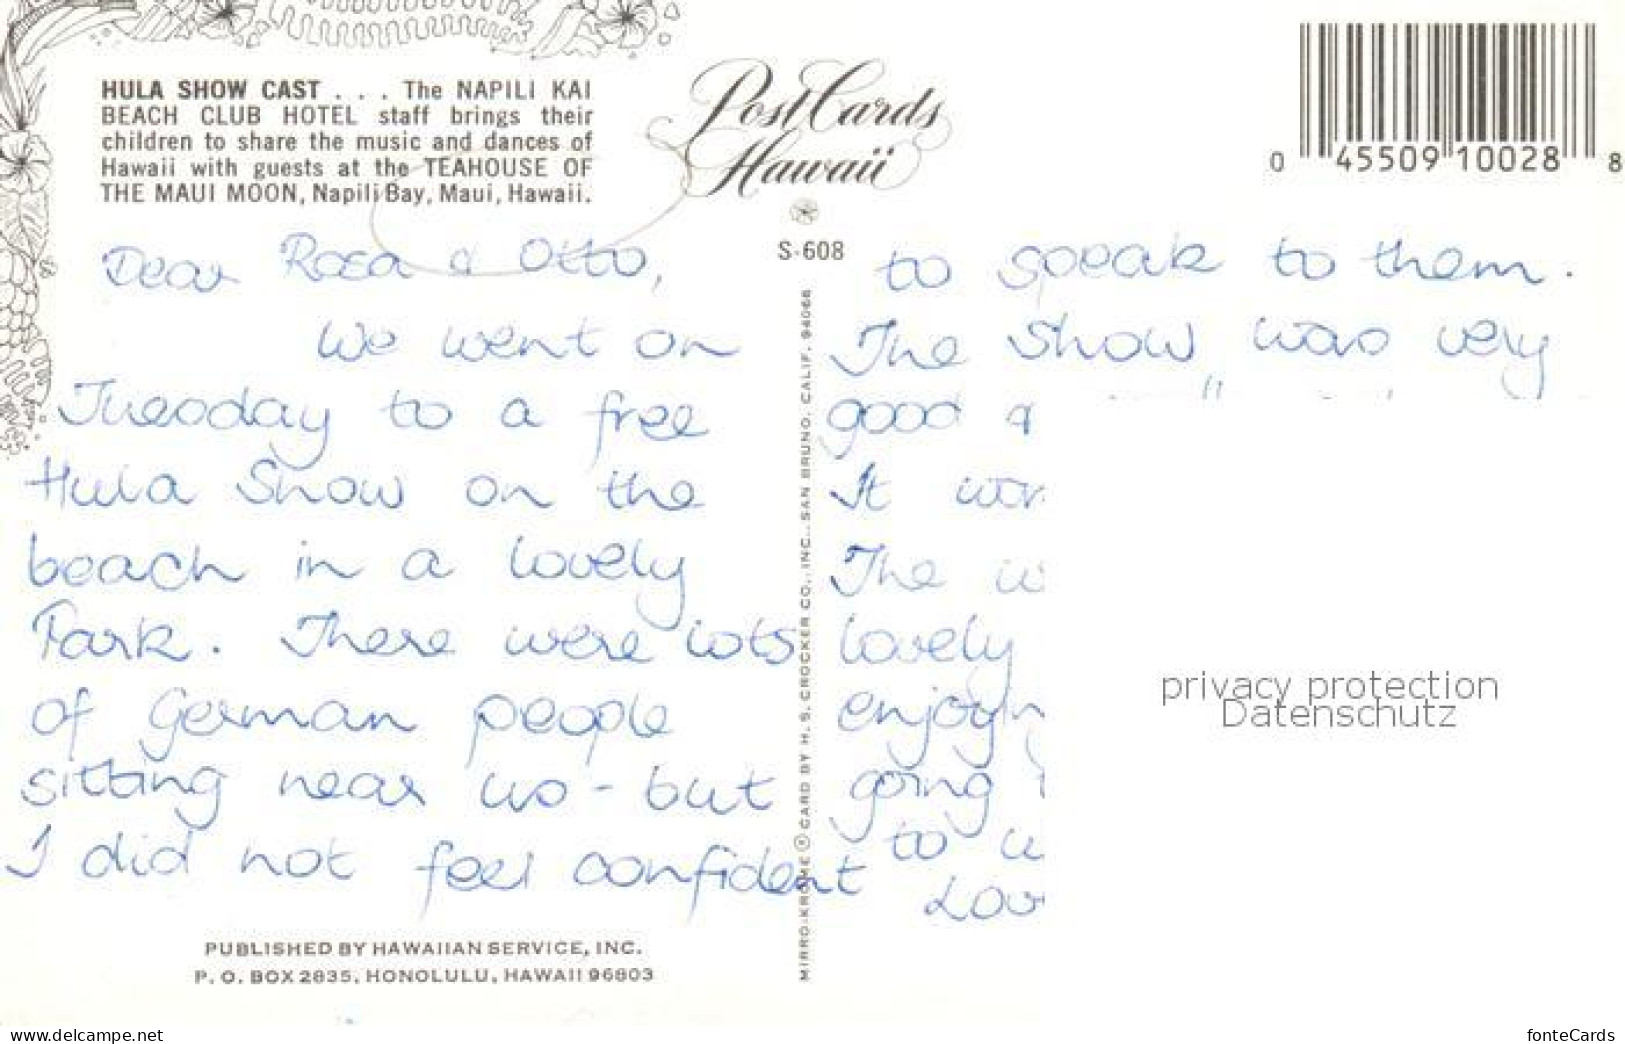 HULA SHOW CAST . . . The NAPILI KAI
BEACH CLUB HOTEL staff brings their
children to share the music and dances of
Hawaii with guests at the TEAHOUSE OF
THE MAUI MOON, Napili Bay, Maui, Hawaii.
PostCards
Hawaii
0 45509 10028 8
S-608
Dear Rosa & Otto,
We went on
Tuesday to a free
Hula Show on the
beach in a lovely
Park. There were lots
of German people
sitting near us - but
I did not feel confident
to speak to them.
The show was very
good &
It
The
lovely
going
to
MIRRO-KROME ® CARD BY H. S. CROCKER CO., INC., SAN BRUNO, CALIF. 94066
PUBLISHED BY HAWAIIAN SERVICE, INC.
P. O. BOX 2835, HONOLULU, HAWAII 96803
privacy protection
Datenschutz
www.delcampe.net
fonteCards